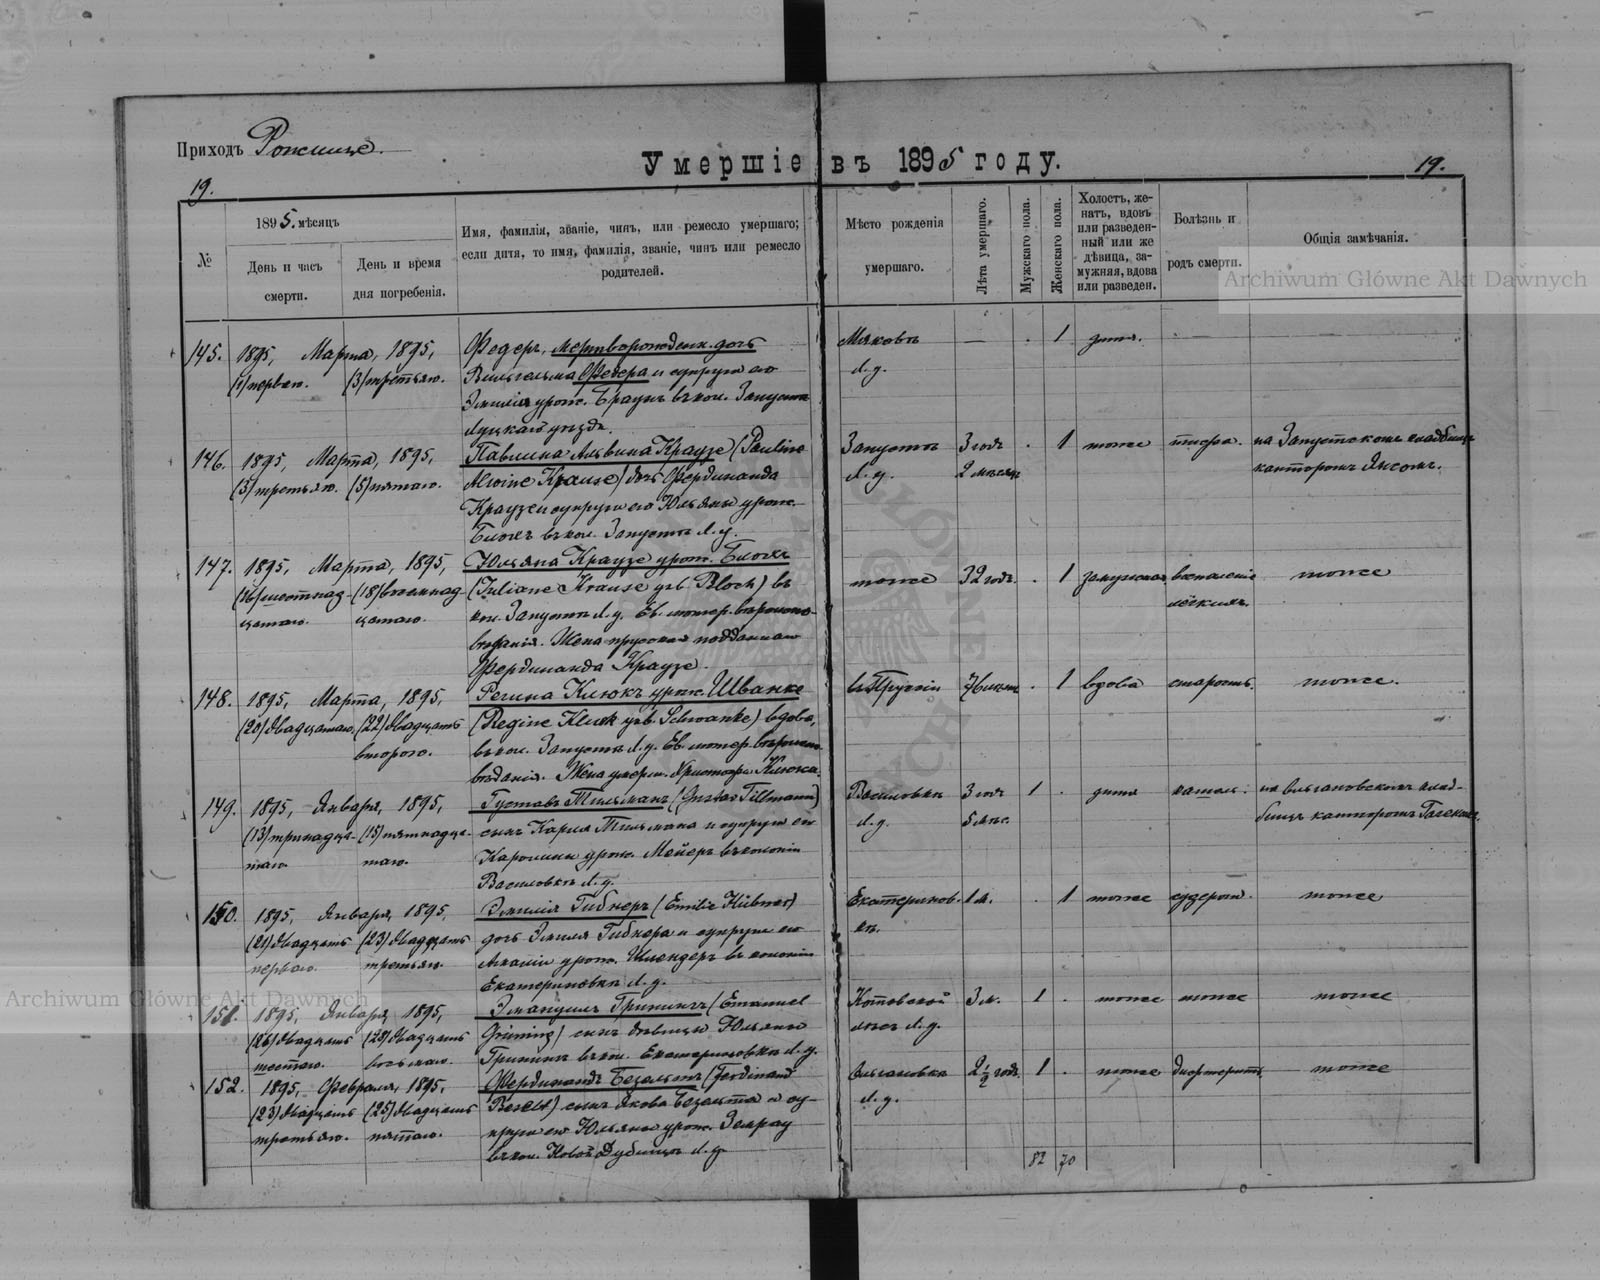 Приходъ Рожище.
Умершіе въ 1895 году.
19.
19.
№
1895. мѣсяцъ
День и часъ
смерти.
День и время
дня погребенія.
Имя, фамилія, званіе, чинъ, или ремесло умершаго;
если дитя, то имя, фамилія, званіе, чинъ или ремесло
родителей.
Мѣсто рожденія
умершаго.
Лѣта умершаго.
Мужскаго пола.
Женскаго пола.
Холостъ, же-
натъ, вдовъ
или разведен-
ный или же
дѣвица, за-
мужняя, вдова
или разведен.
Болѣзнь и
родъ смерти.
Общія замѣчанія.
Archiwum Główne Akt Dawnych
145. 1895, Марта, 1895, Федеръ, мертворожден. дочь — . 1 дитя. —
(1) перваго. (3) третьяго. Вильгельма Федера и супруги его Л.у.
Эмиліи урож. Браунъ въ кол. Запустъ
Луцкаго уѣзда.
146. 1895, Марта, 1895, Павлина Альвина Краузе (Pauline Запустъ 3 года . 1 тоже
(3) третьяго. (5) пятаго. Alwine Krause) дочь Фердинанда Л.у. 2 мѣсяца канторомъ
Краузе и супруги его Юльяны урож.
Блокъ въ кол. Запустъ Л.у.
147. 1895, Марта, 1895, Юльяна Краузе урож. Блокъ тоже 32 года . 1 замужняя воспаленіе тоже
(16) шестнад- (18) восемнад- (Juliane Krause geb Bloch) въ легкихъ.
цатаго. цатаго. кол. Запустъ Л.у. Ев. лютер. вѣроиспо-
вѣданія. Жена прусскаго подданнаго
Фердинанда Краузе.
148. 1895, Марта, 1895, Регина Клюкъ урож. Шванке въ Пруссіи 76 лѣтъ . 1 вдова старость. тоже.
(20) двадцатаго. (22) двадцать (Regine Kluck geb. Schwanke) вдова,
второго. въ кол. Запустъ Л.у. Ев. лютер. вѣроиспо-
вѣданія. Жена умерш. Христофа Клюка.
149. 1895, Января, 1895, Густавъ Тильманъ (Gustav Tillmann) Василовка 3 года 1 . дитя кашель.
(13) тринадца- (15) пятнадца- сынъ Карла Тильмана и супруги его Л.у. 5 мѣс. канторомъ
таго. таго. Каролины урож. Мейеръ въ колоніи
Василовка Л.у.
150. 1895, Января, 1895, Эмилія Гибнеръ (Emilie Hübner) Екатеринов- 1 м. . 1 тоже судороги. тоже
(21) двадцать (23) двадцать дочь Эмиля Гибнера и супруги его ка.
перваго. третьяго. урож. въ колоніи
Екатериновка Л.у.
Archiwum Główne Akt Dawnych
151. 1895, Января, 1895, Эмануилъ Грининъ (Emanuel 3 м. 1 . тоже тоже тоже
(26) двадцать (28) двадцать Grüning) сынъ дѣвицы Юльяны Л.у.
шестаго. восьмаго. Грининъ въ кол. Екатериновка Л.у.
152. 1895, Февраля, 1895, Фердинандъ Безельтъ (Ferdinand 2 ½ года. 1 . тоже дифтеритъ тоже
(23) двадцать (25) двадцать Beselt) сынъ Якова Безельта и су- Л.у.
третьяго. пятаго. пруги его Юльяны урож.
въ кол. Л.у.
82 70